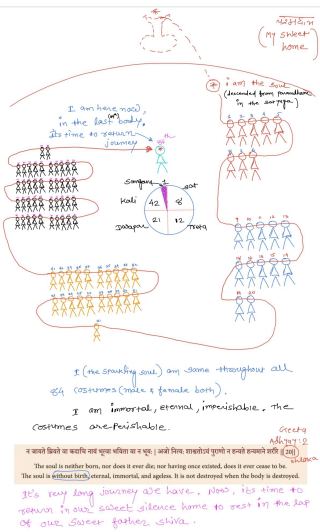 परमधाम
(My sweet home)
i am the soul
(descended from paramdham
in the satyuga)
I am here now,
in the last body. (84th)
Its time to return
journey
84 th
Sangam 1
Sat
Kali 42 8
21 12
Treta
I (the sparkling soul) am same throughout all
84 costumes (male & female both).
I am immortal, eternal, imperishable. The
costumes are perishable.
Geeta
Adhyay:2
shloka
न जायते म्रियते वा कदाचि न्नायं भूत्वा भविता वा न भूयः | अजो नित्यः शाश्वतोऽयं पुराणो न हन्यते हन्यमाने शरीरे || 20||
The soul is neither born, nor does it ever die; nor having once existed, does it ever cease to be.
The soul is without birth, eternal, immortal, and ageless. It is not destroyed when the body is destroyed.
It's very long journey we have, Now, its time to
return in our sweet silence home to rest in the lap
of our sweet father shiva.